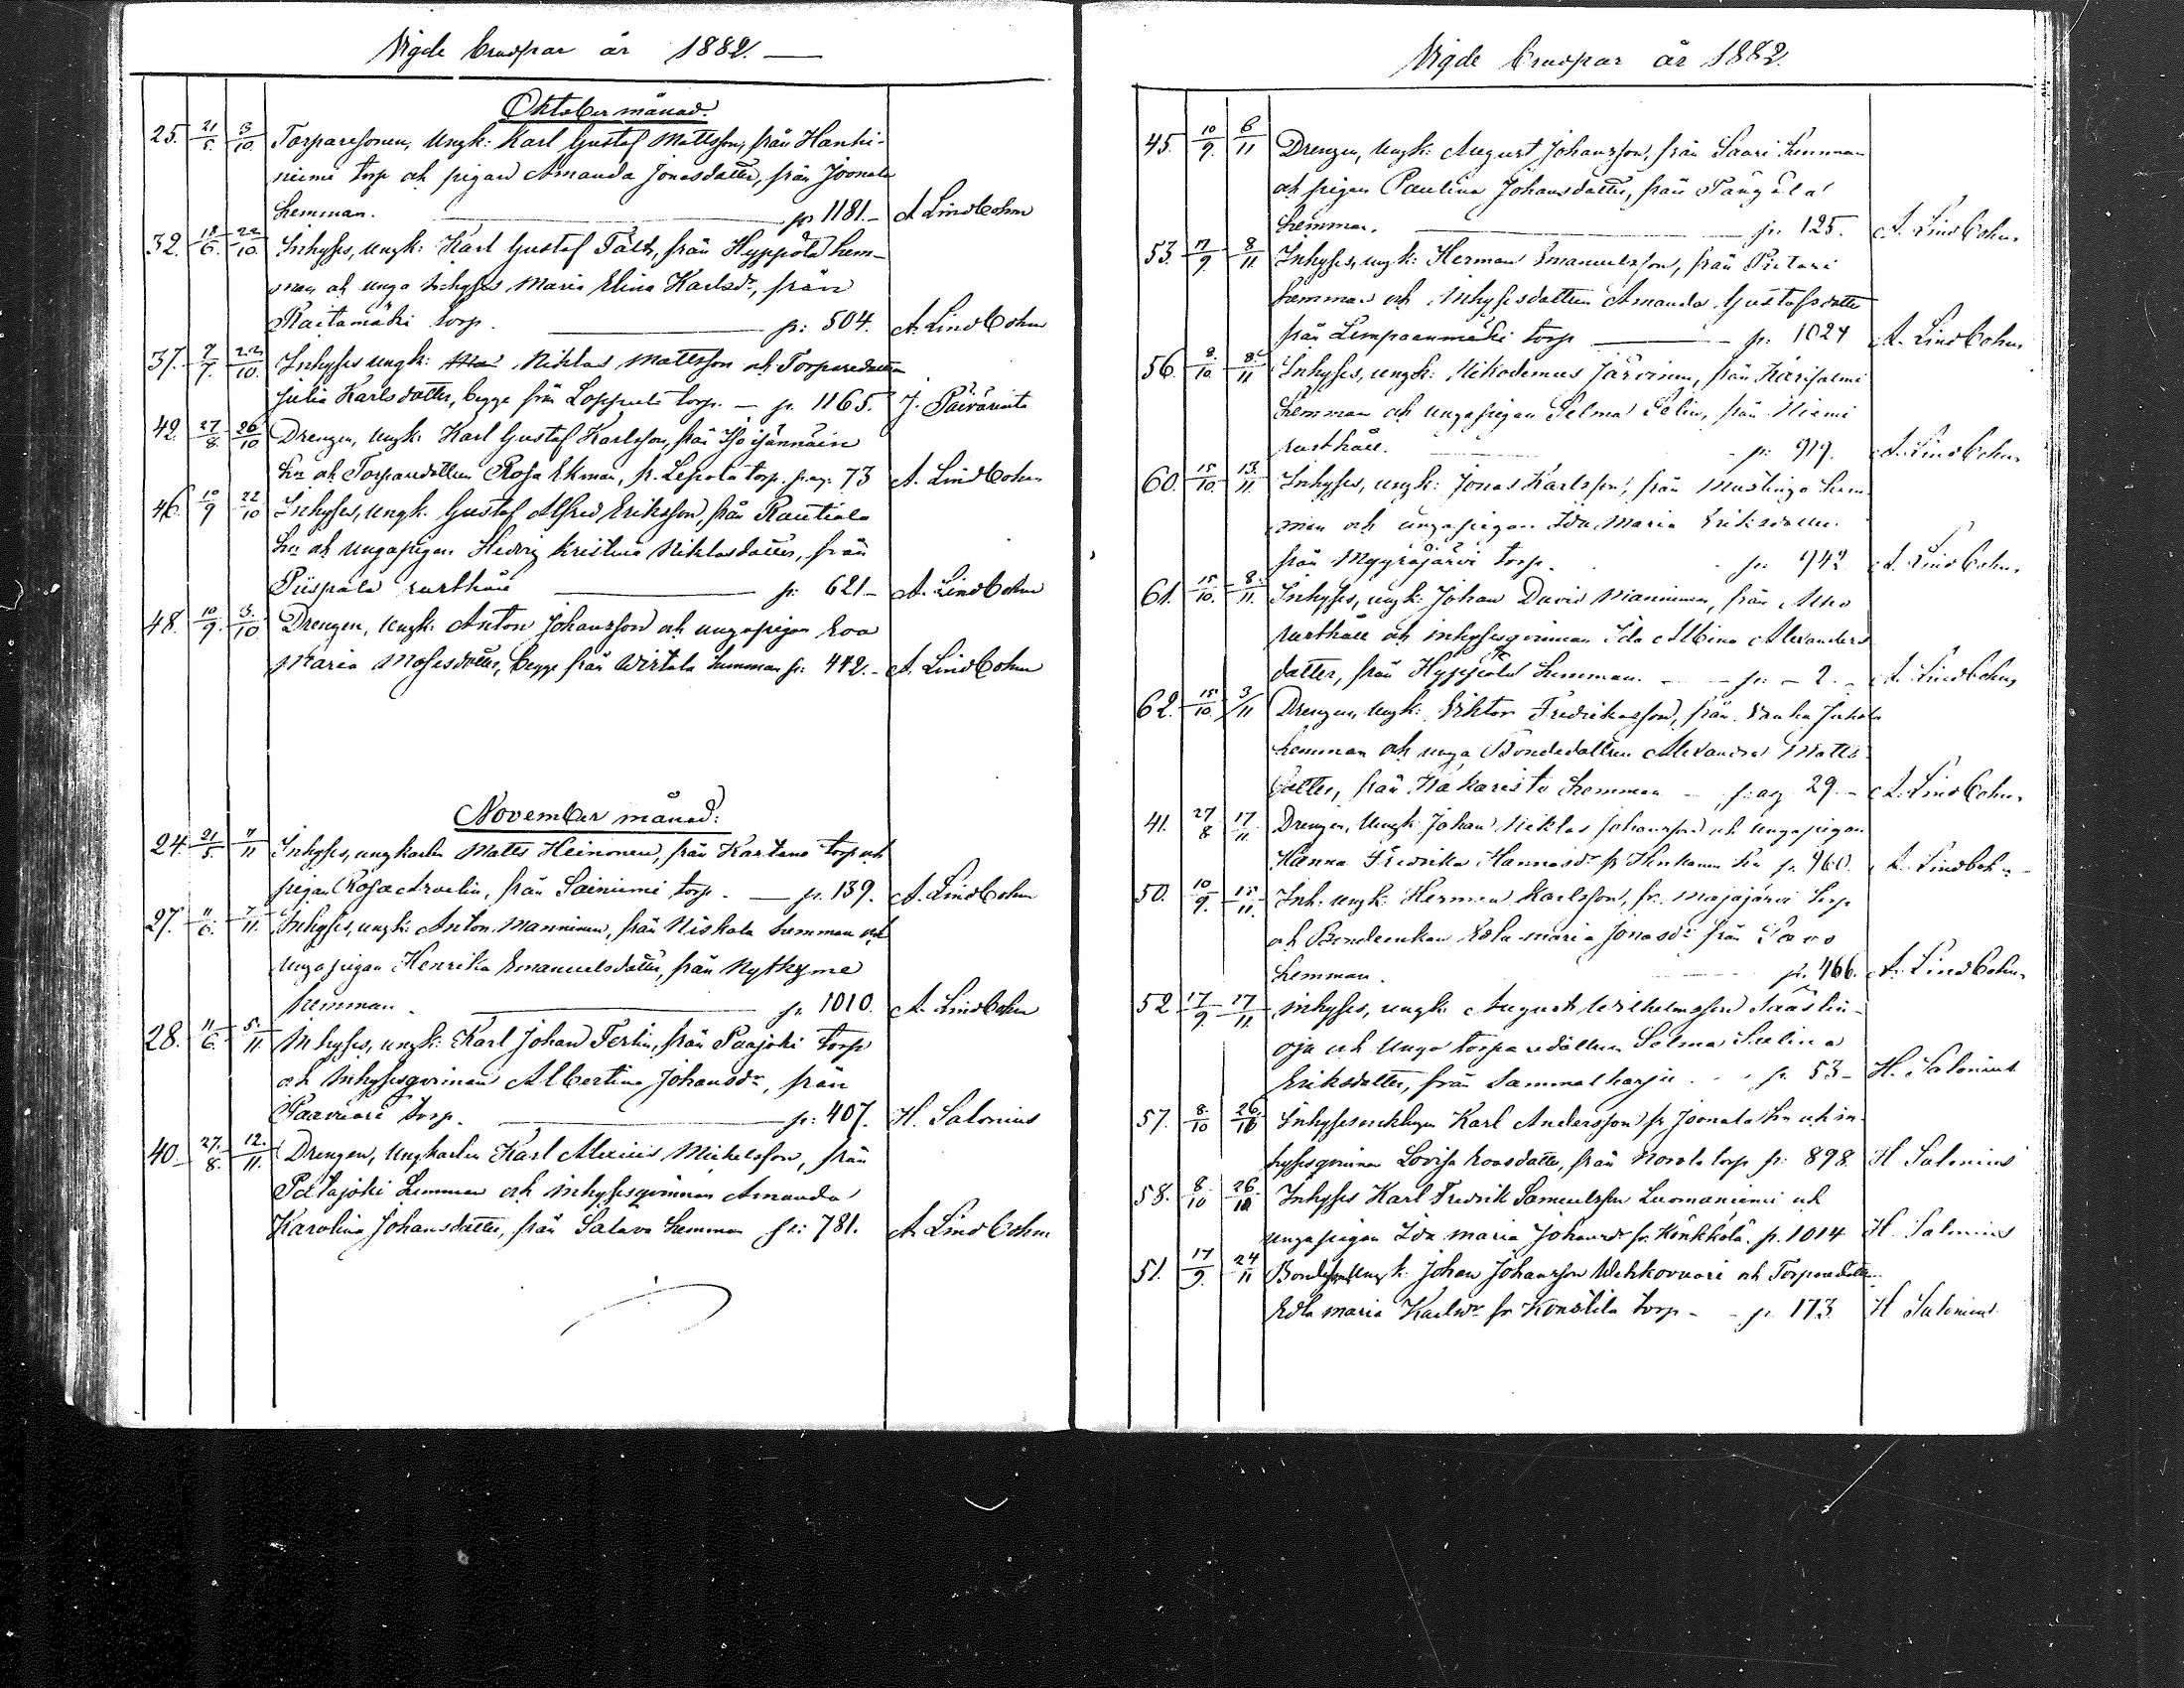 Vigde brudpar år 1882.
Oktober månad.
25. 21/5. 3/10 Torparesonen, Ungk: Karl Gustaf Mattsson, från Hanhi-
niemi torp och pigan Amanda Jonasdatter, från Joonala
hemman. p. 1181. A. Lindbohm
32. 18/6. 22/10. Inhyses, ungk: Karl Gustaf Fält, från Hyppölä hem-
man och unga inhyses Maria Elina Karlsdr, från
Raitamäki torp. p: 504. A. Lindbohm
37. 7/7. 22/10. Inhyses ungk: Niklas Mattsson och Torparedatter
Julia Karlsdatter, begge från torp. p. 1165. J. Päivärinta
42. 27/8. 26/10 Drengen, Ungk: Karl Gustaf Karlsson, från Iso
hn och Torparedattren Rosa Ekman, fr. Lepola torp. pag. 73 A. Lindbohm
46. 10/9 22/10 Inhyses, Ungk. Gustaf Alfred Eriksson, från Rautiala
hn och Ungapigan Hedvig Kristina Niklasdatter, från
Piispala rusthåll p: 621 A. Lindbohm
48. 10/9. 3./10. Drengen, Ungk: Anton Johansson och ungapigan Eva
Maria Mosesdatter, begge från Wirtala hemman p: 442. A. Lindbohm
November månad:
24. 21/5. 7/11 Inhyses, ungkarlen Matts Heinonen, från Kartano torp och
pigan Rosa Arvelin, från Sainiemi torp. p. 139. A. Lindbohm
27. 11/6. 7/11. Inhyses, ungk: Anton Manninen, från Niskala hemman och
Ungapigan Henrika Emanuelsdatter, från
hemman. p. 1010. A. Lindbohm
28. 11/6. 5./11. Inhyses, ungk: Karl Johan Ferlin, från Paajoki torp
och Inhysesqvinnan Albertina Johansdr, från
Paavuori torp. p: 407. H. Salonius
40. 27./8. 12./11. Drengen, Ungkarlen Karl Alexius Mickelsson, från
Patajoki hemman och inhysesqvinnan Amanda
Karolina Johansdatter, från Salava hemman p: 781. A. Lindbohm
Vigde brudpar år 1882.
45. 10/9. 6/11 Drengen, ungk: August Johansson, från Saari hemman
och pigan Paulina Johansdatter, från
hemman. p. 125. A. Lindbohm
53. 17/9. 8/11. Inhyses, ungk: Herman Emanuelsson, från Pietari
hemman och Inhysesdattren Amanda Gustafsdatter
från Limpaanmäki torp p. 1024 A. Lindbohm
56. 8/10 8/11 Inhyses, ungk: Nikodemus Järvinen, från
hemman och ungapigan Selma Selin, från Niemi
rusthåll. p: 919. A. Lindbohm
60. 15/10. 13./11. Inhyses, ungk: Jonas Karlsson, från hem-
man och ungapigan Ida Maria Eriksdatter
från Myyräjärvi torp. p: 942 A. Lindbohm
61. 15/10. 8/11. Inhyses, ungk: Johan David Manninen, från
rusthåll och inhysesqvinnan Ida Albina Alexanders
datter, från Hyppölä hemman. p: 2. A. Lindbohm
62. 15/10. 3/11 Drengen, ungk: Viktor Fredriksson, från Vanha
hemman och unga Bondedattren Alexandra Matts
datter, från hemman pag 29. A. Lindbohm
41. 27/8 17/11. Drengen, Ungk: Johan Niklas Johansson och Ungapigan
Hanna Fredrika p. 960. A. Lindbohm
50. 10/9. 15/11. Inh. ungk: Herman Karlsson, fr. Majajärvi torp
och Bondeenkan Edla Maria Jonasdr från
hemman. p. 466. A. Lindbohm
52 17/9. 17/11. Inhyses, ungk: August Wilhelmsson
oja och Unga torparedattren Selma
Eriksdatter, från Sammalharju p. 53 H. Salonius
57. 8./10 26./10 Inhysesenklingen Karl Andersson fr Joonala hn och in-
hysesqvinnan Lovisa Evasdatter, från torp p: 898. H Salonius
58. 8/10 26/10 Inhyses Karl Fredrik Samuelsson Luomaniemi och
ungapigan Ida Maria Johansdr fr. Könkkölä. p. 1014 H. Salonius
51. 17/9. 24/11 Bondesonen Ungk: Johan Johansson Wehkovuori och Torparedatter
Edla Maria Karlsdr fr Konstila torp p. 173 H Salonius